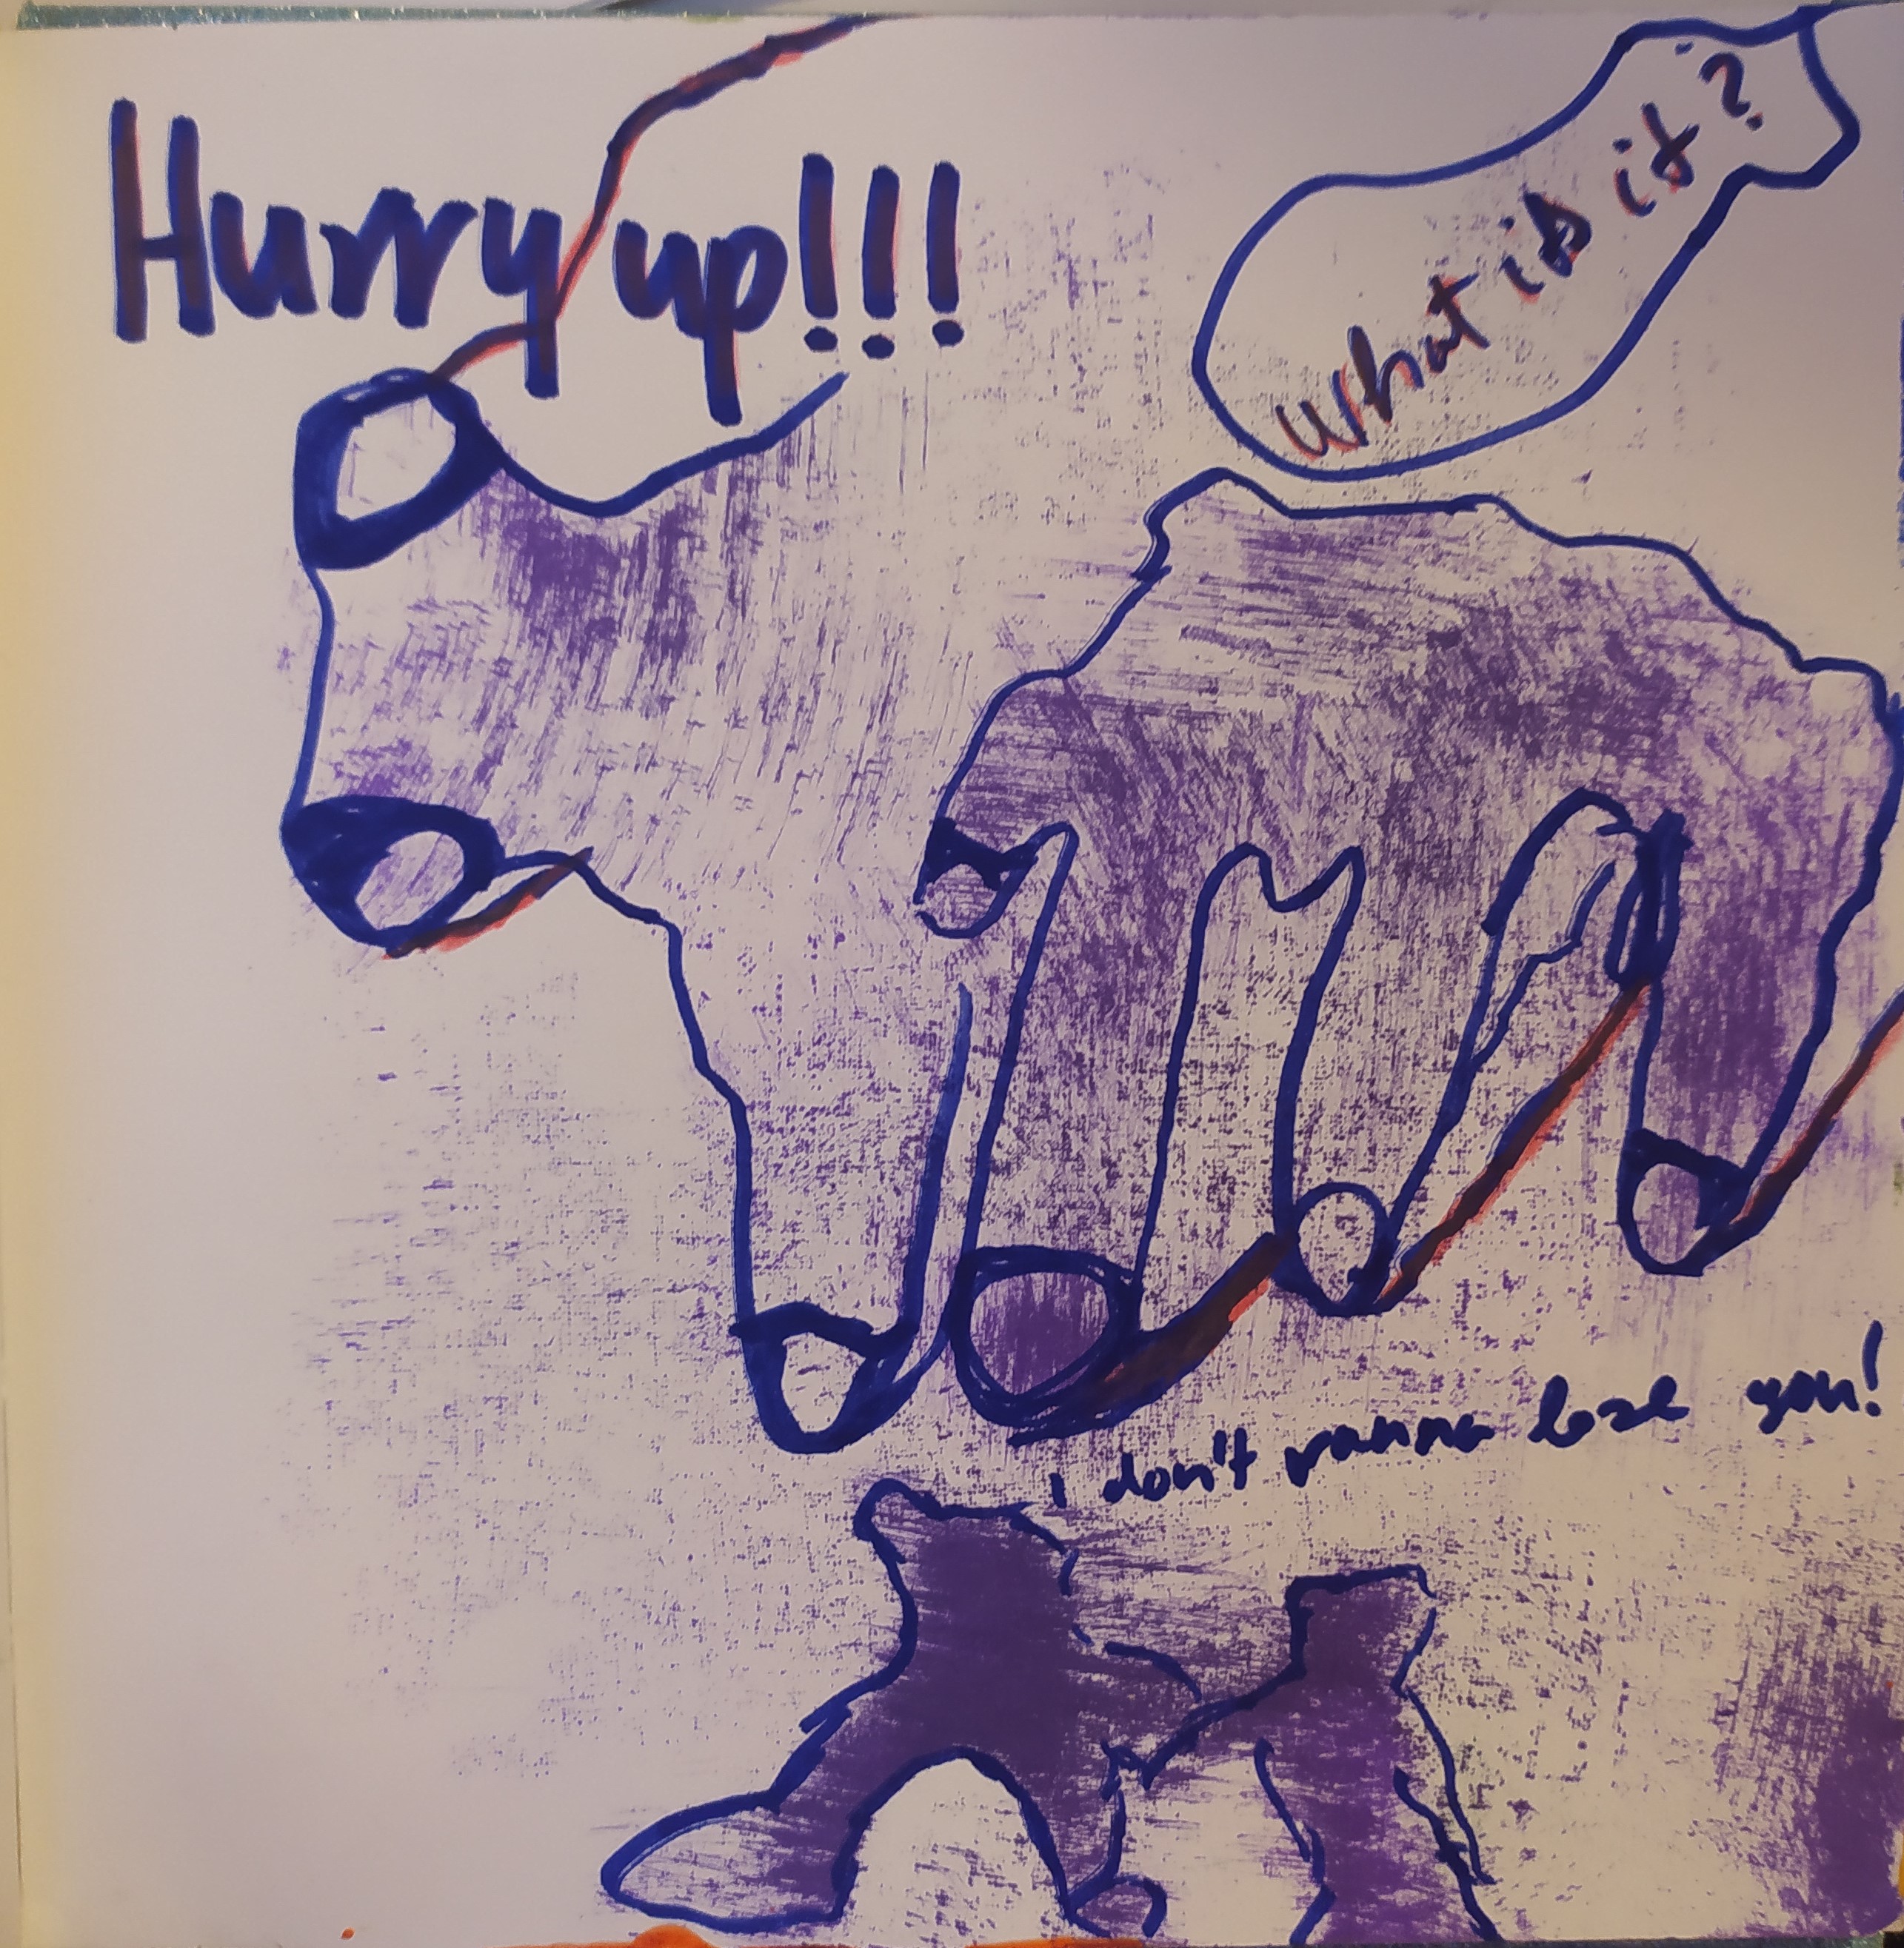 Hurry up!!!
What is it?
I don't wanna lose you!